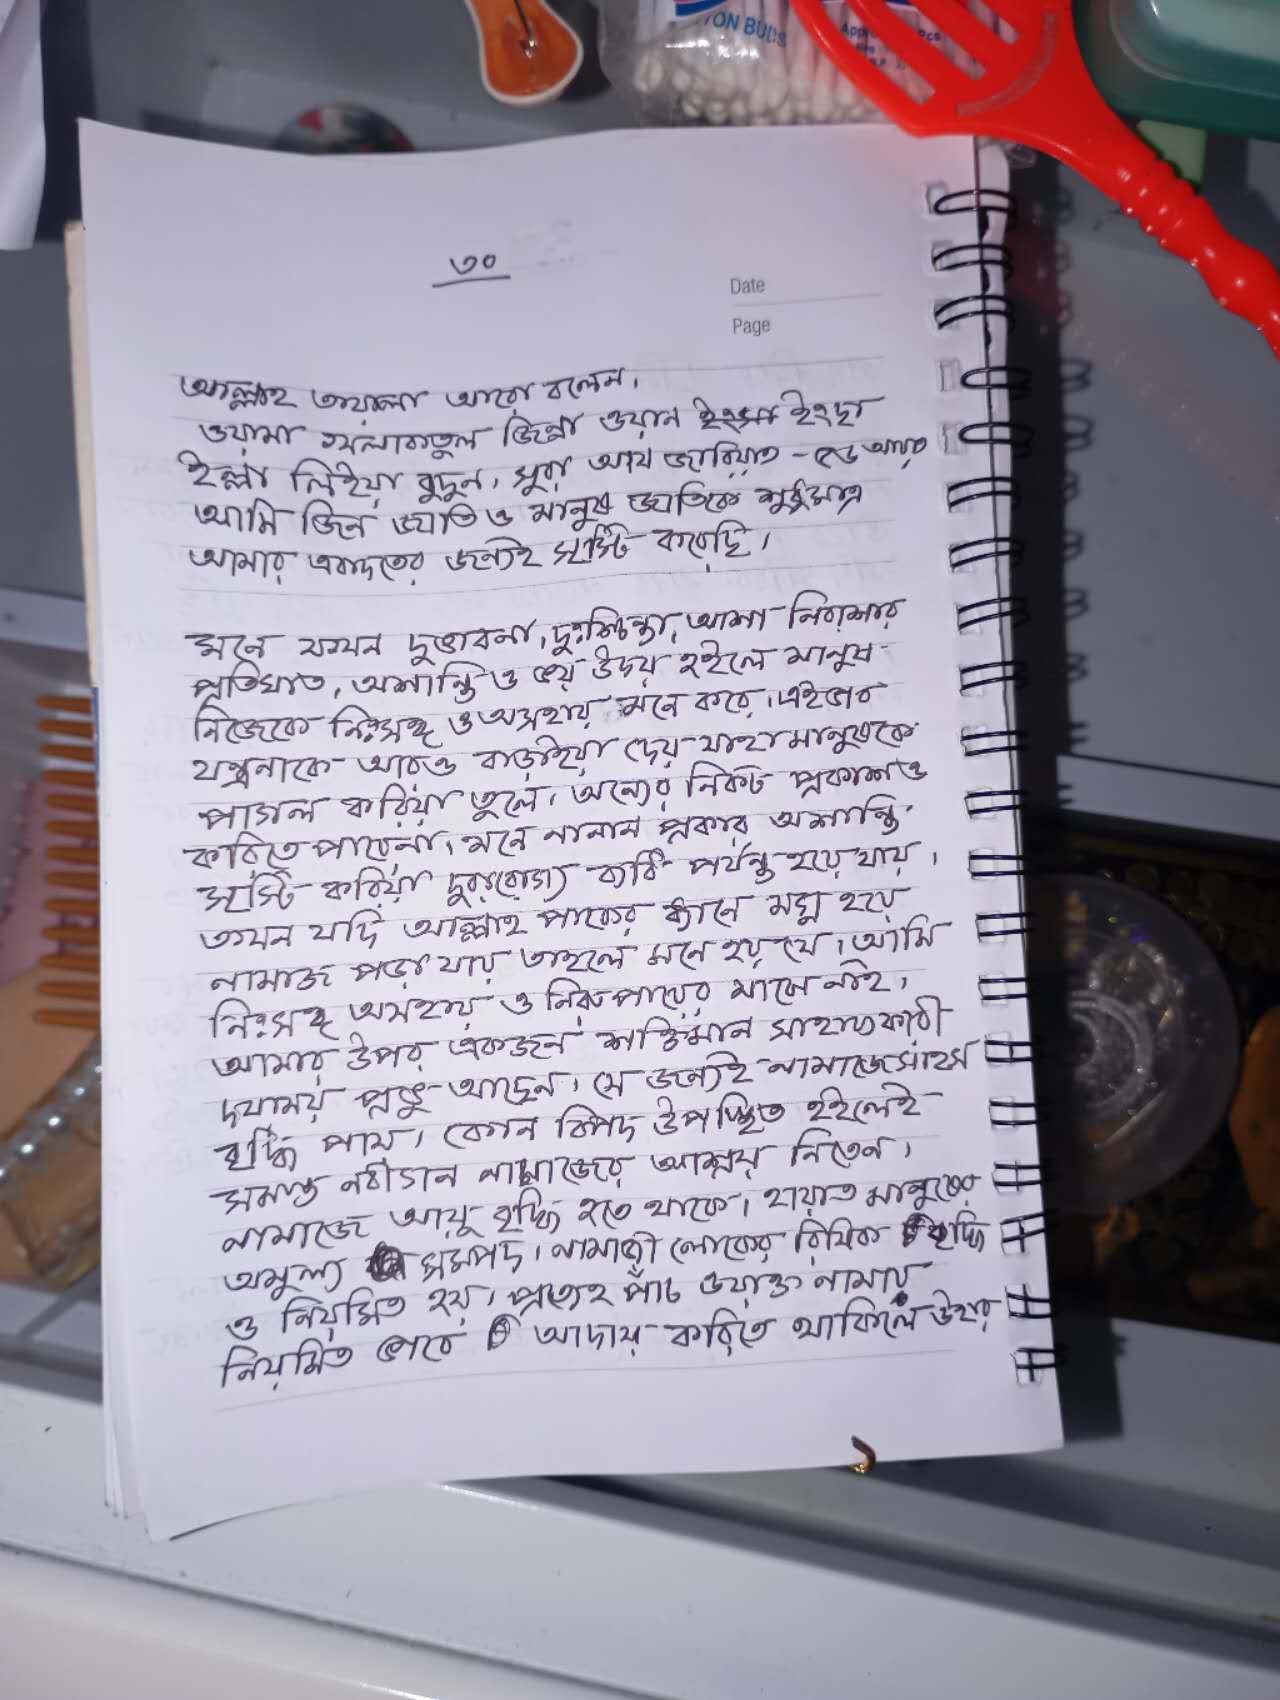 TON BUDS
৩০
Date
Page
আল্লাহ তায়ালা আরো বলেন,
ওয়ামা খালাকতুল জিন্না ওয়াল
ইল্লা লিইয়া বুদুন, সুরা আয জারিয়াত - ৫৬ আয়াত
আমি জিন জাতি ও মানুষ জাতিকে শুধুমাত্র
আমার এবাদতের জন্যই সৃস্টি করেছি।
মনে যখন দুর্ভাবনা, দুঃশ্চিন্তা, আশা নিরাশার
প্রতিঘাত, অশান্তি ও ভয় উদয় হইলে মানুষ
নিজেকে নিঃসঙ্গ ও অসহায় মনে করে। এইভাব
যন্ত্রনাকে আরও বাড়াইয়া দেয় যাহা মানুষকে
পাগল করিয়া তুলে। অন্যের নিকট প্রকাশও
করিতে পারেনা। মনে নানান প্রকার অশান্তি
সৃস্টি করিয়া দুরারোগ্য ব্যাধি পর্যন্ত হয়ে যায়।
তখন যদি আল্লাহ পাকের ধ্যানে মগ্ন হয়ে
নামাজ পড়া যায় তাহলে মনে হয় যে, আমি
নিঃসঙ্গ অসহায় ও নিরুপায়ের মাঝে নাই,
আমার উপর একজন শক্তিমান সাহায্যকারী
দয়াময় প্রভু আছেন। সে জন্যই নামাজে সাহস
বৃদ্ধি পায়। কোন বিপদ উপস্থিত হইলেই
সমস্ত নবীগন নামাজের আশ্রয় নিতেন।
নামাজে আয়ু বৃদ্ধি হতে থাকে। হায়াত মানুষের
অমুল্য সমপদ। নামাজী লোকের রিযিক বৃদ্ধি
ও নিয়মিত হয়। প্রত্যেহ পাঁচ ওয়াক্ত নামায
নিয়মিত ভাবে আদায় করিতে থাকিলে উহার